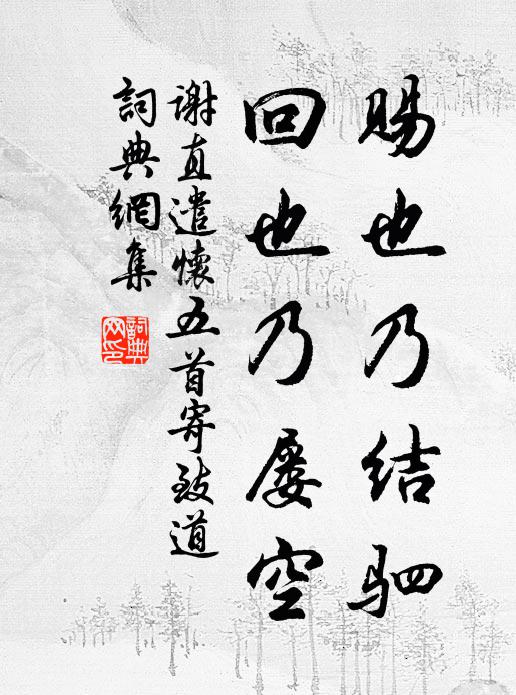 赐也乃结驷
回也乃屡空
谢直遣懷五首寄致道
詞典網集
詞典
网印